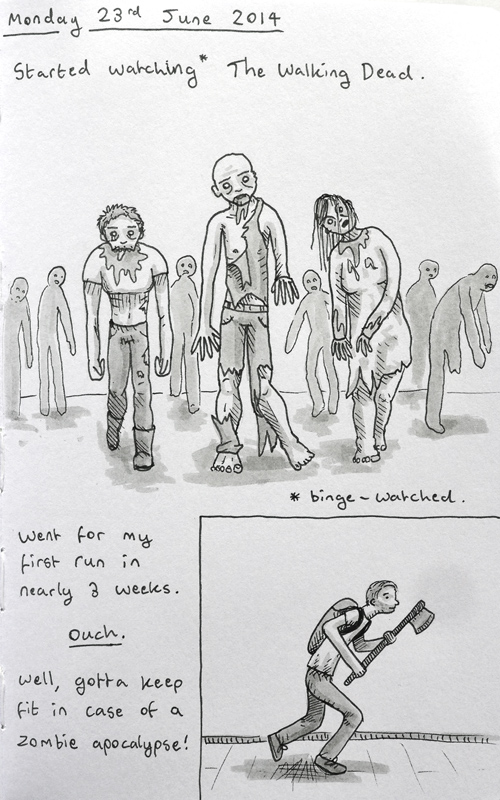 Monday 23rd June 2014
Started watching* The Walking Dead.
* binge-watched.
Went for my
first run in
nearly 3 weeks.
Ouch.
Well, gotta keep
fit in case of a
zombie apocalypse!